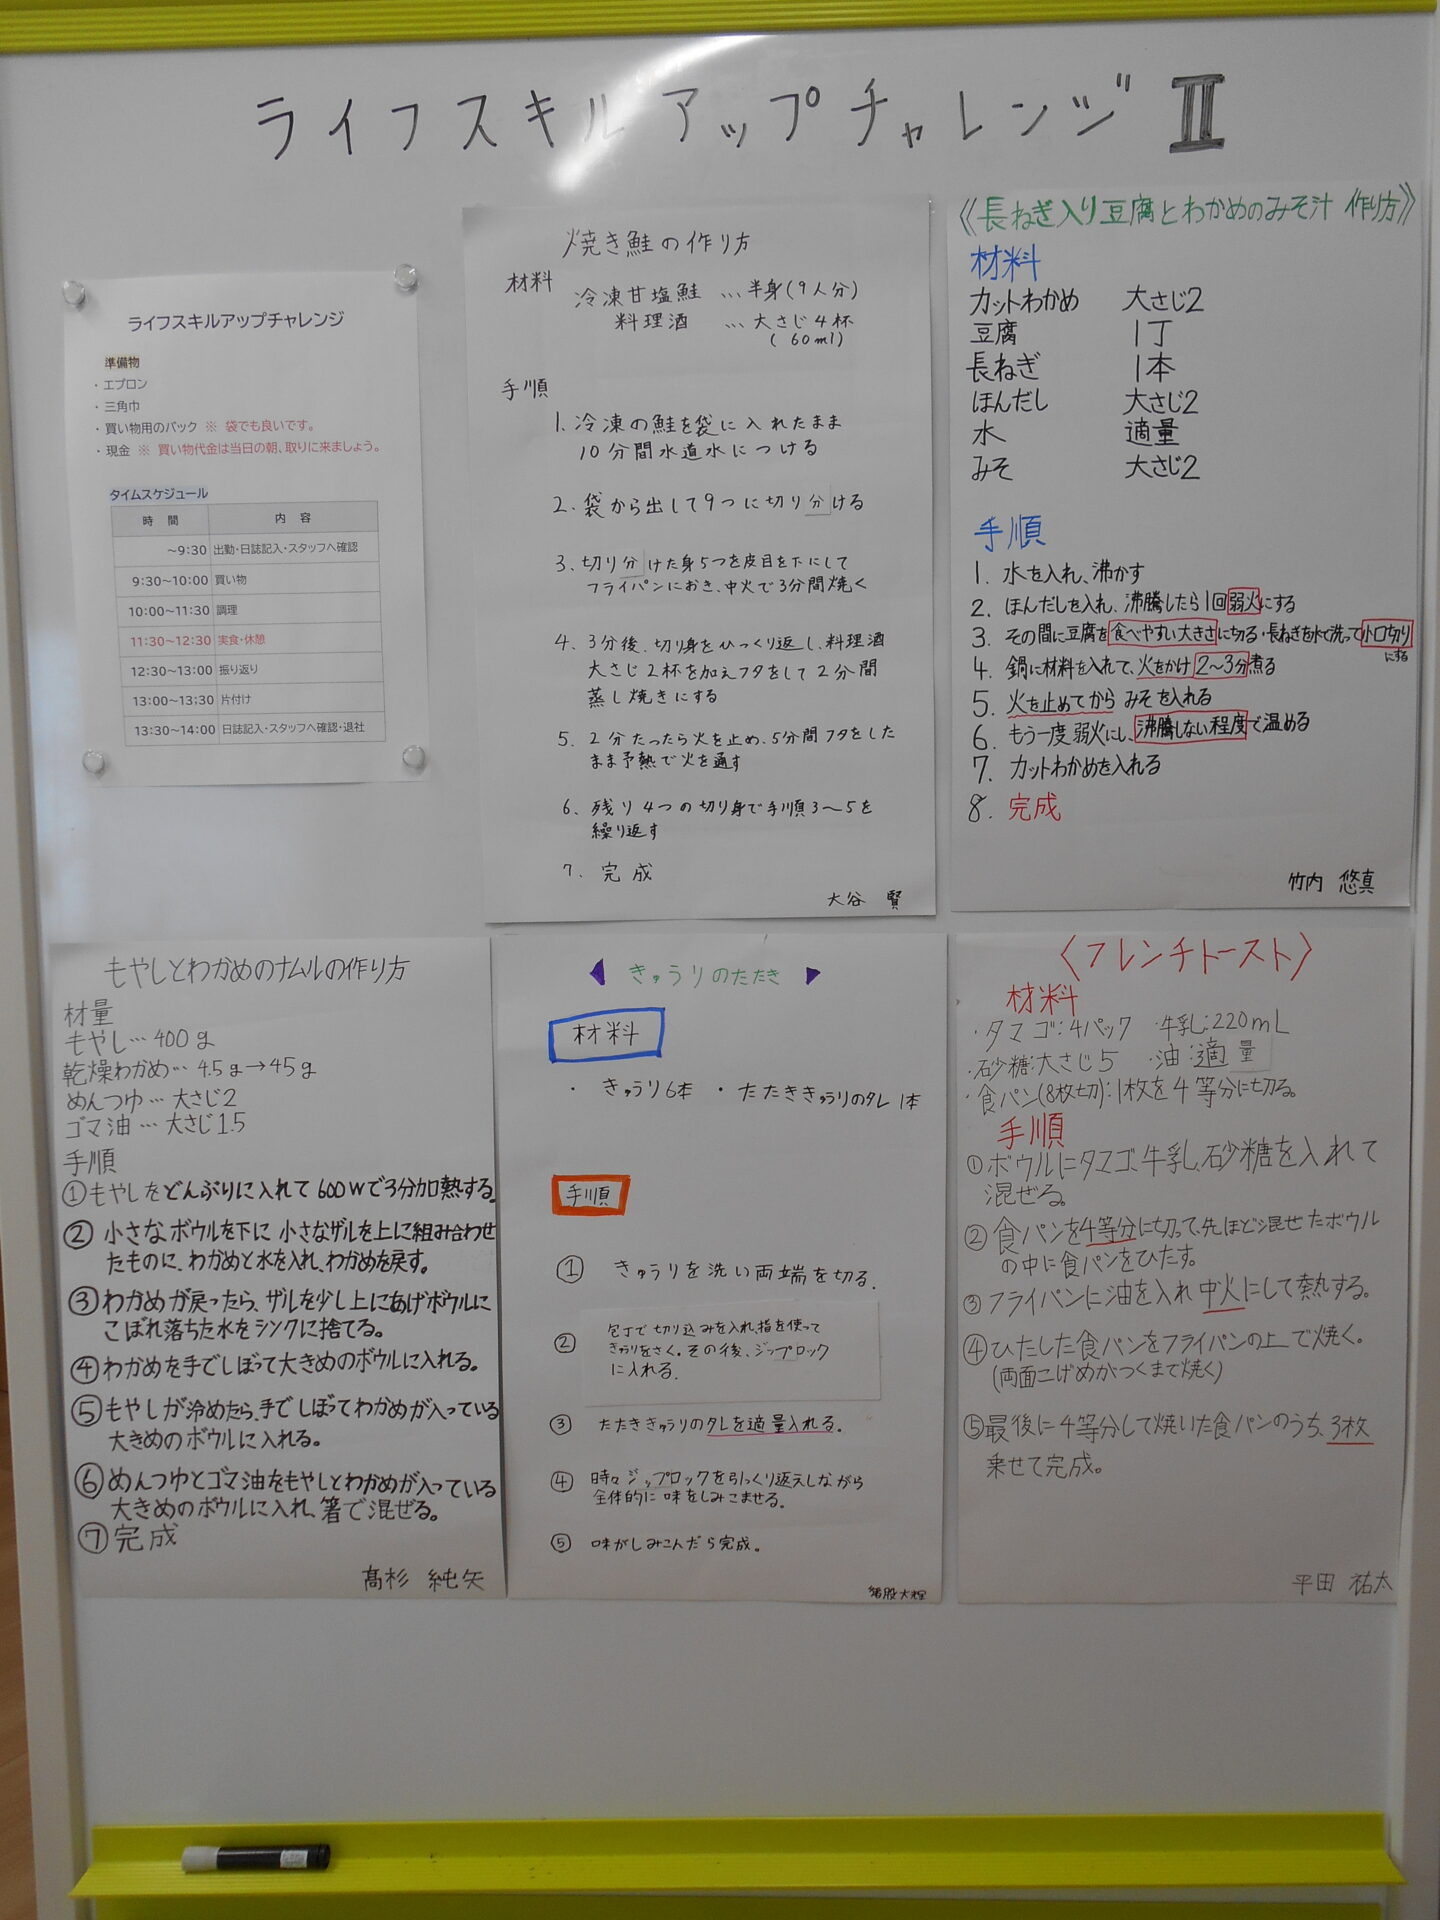 ライフスキルアップチャレンジⅡ
ライフスキルアップチャレンジ
準備物
・エプロン
・三角巾
・買い物用のバック ※ 袋でも良いです。
・現金 ※ 買い物代金は当日の朝、取りに来ましょう。
タイムスケジュール
時 間 内 容
～9:30 出勤・日誌記入・スタッフへ確認
9:30～10:00 買い物
10:00～11:30 調理
11:30～12:30 実食・休憩
12:30～13:00 振り返り
13:00～13:30 片付け
13:30～14:00 日誌記入・スタッフへ確認・退社
焼き鮭の作り方
材料
冷凍甘塩鮭 …半身(9人分)
料理酒 … 大さじ4杯
(60ml)
手順
1. 冷凍の鮭を袋に入れたまま
10分間水道水につける
2. 袋から出して9つに切り分ける
3. 切り分けた身5つを皮目を下にして
フライパンにおき、中火で3分間焼く
4. 3分後、切り身をひっくり返し、料理酒
大さじ2杯を加えフタをして2分間
蒸し焼きにする
5. 2分たったら火を止め、5分間フタをした
まま予熱で火を通す
6. 残り4つの切り身で手順3～5を
繰り返す
7. 完成
大谷 賢
《長ねぎ入り豆腐とわかめのみそ汁 作り方》
材料
カットわかめ 大さじ2
豆腐 1丁
長ねぎ 1本
ほんだし 大さじ2
水 適量
みそ 大さじ2
手順
1. 水を入れ、沸かす
2. ほんだしを入れ、沸騰したら1回弱火にする
3. その間に豆腐を食べやすい大きさに切る・長ねぎを水で洗って小口切り
にする
4. 鍋に材料を入れて、火をかけ2～3分煮る
5. 火を止めてから みそを入れる
6. もう一度 弱火にし、沸騰しない程度で温める
7. カットわかめを入れる
8. 完成
竹内 悠真
もやしとわかめのナムルの作り方
材量
もやし… 400g
乾燥わかめ… 4.5g→45g
めんつゆ… 大さじ2
ゴマ油… 大さじ1.5
手順
①もやしをどんぶりに入れて600Wで3分加熱する。
②小さなボウルを下に 小さなザルを上に組み合わせ
たものに、わかめと水を入れ、わかめを戻す。
③わかめが戻ったら、ザルを少し上にあげボウルに
こぼれ落ちた水をシンクに捨てる。
④わかめを手でしぼって大きめのボウルに入れる。
⑤もやしが冷めたら、手でしぼってわかめが入っている
大きめのボウルに入れる。
⑥めんつゆとゴマ油をもやしとわかめが入っている
大きめのボウルに入れ、箸で混ぜる。
⑦完成
髙杉 純矢
きゅうりのたたき
材料
・ きゅうり6本 ・ たたききゅうりのタレ 1本
手順
① きゅうりを洗い両端を切る。
② 包丁で切り込みを入れ、指を使って
きゅうりをさく。その後、ジップロック
に入れる。
③ たたききゅうりのタレを適量入れる。
④ 時々ジップロックを引っくり返えしながら
全体的に味をしみこませる。
⑤ 味がしみこんだら完成。
猪股大輝
〈フレンチトースト〉
材料
・タマゴ:4パック ・牛乳:220mL
・砂糖:大さじ5 ・油:適量
・食パン(8枚切):1枚を4等分に切る。
手順
①ボウルにタマゴ、牛乳、砂糖を入れて
混ぜる。
②食パンを4等分に切って、先ほど混ぜたボウル
の中に食パンをひたす。
③フライパンに油を入れ中火にして熱する。
④ひたした食パンをフライパンの上で焼く。
(両面こげめがつくまで焼く)
⑤最後に4等分して焼いた食パンのうち、3枚
乗せて完成。
平田 祐太